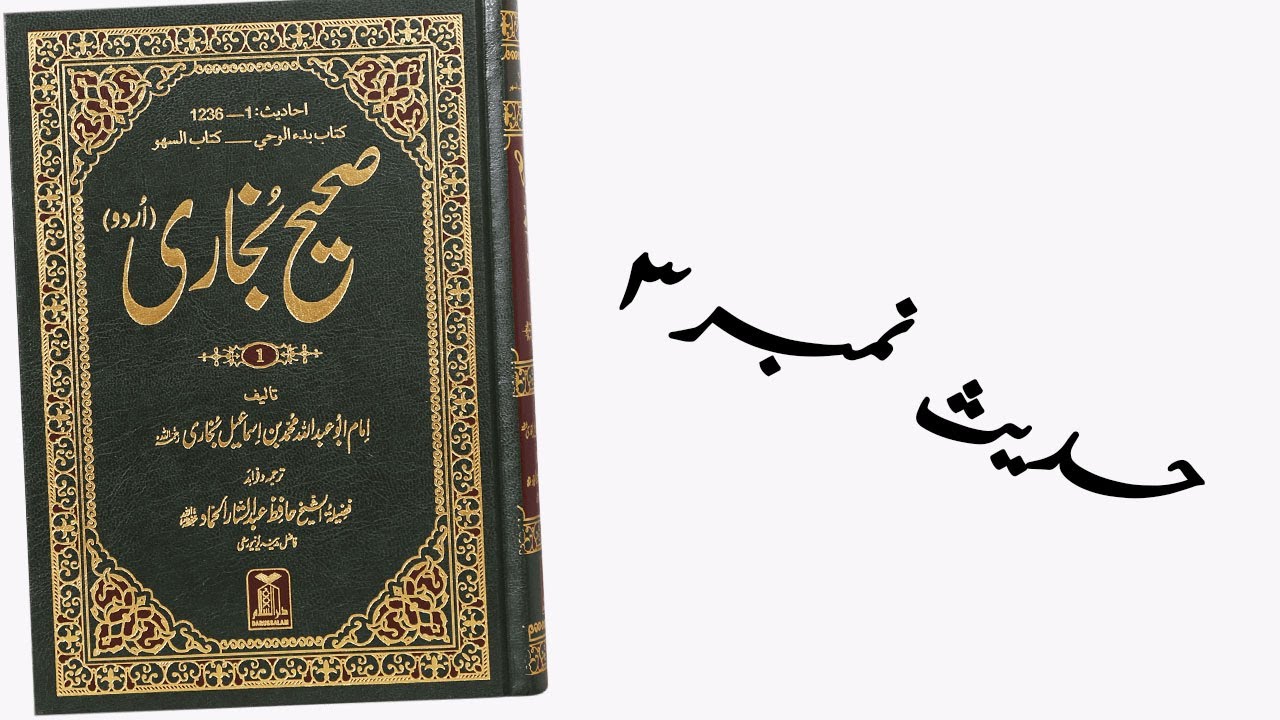 احادیث: 1 — 1236
کتاب بدء الوحي — کتاب السهو
صحیح بُخاری (اُردو)
1
تالیف
اِمام ابُو عبداللہ محمّد بن اِسماعیل بُخاری رحمہ اللہ
ترجمہ و فوائد
فضیلۃ الشیخ حافظ عبدالستار الحماد حفظہ اللہ
فاضل مدینہ یونیورسٹی
دارالسلام
DARUSSALAM
حدیث نمبر ۳